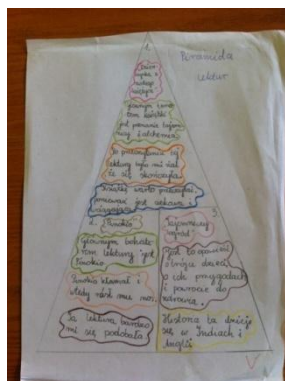 Piramida
lektur
1.
głównym
jest
Po przeczytaniu tej
lektury było mi żal
że się skończyła.
Książkę warto przeczytać,
ponieważ jest ciekawa i
2. Pinokio
Głównym bohate-
rem lektury jest
Pinokio
Pinokio kłamał i
wtedy rósł mu nos.
Ta lektura bardzo
mi się podobała
3.
Tajemniczy
ogród
Jest to opowieść
o trójce dzieci,
o ich przygodach
i powrocie do
zdrowia.
Historia ta dzieje
się w Indiach i
Anglii